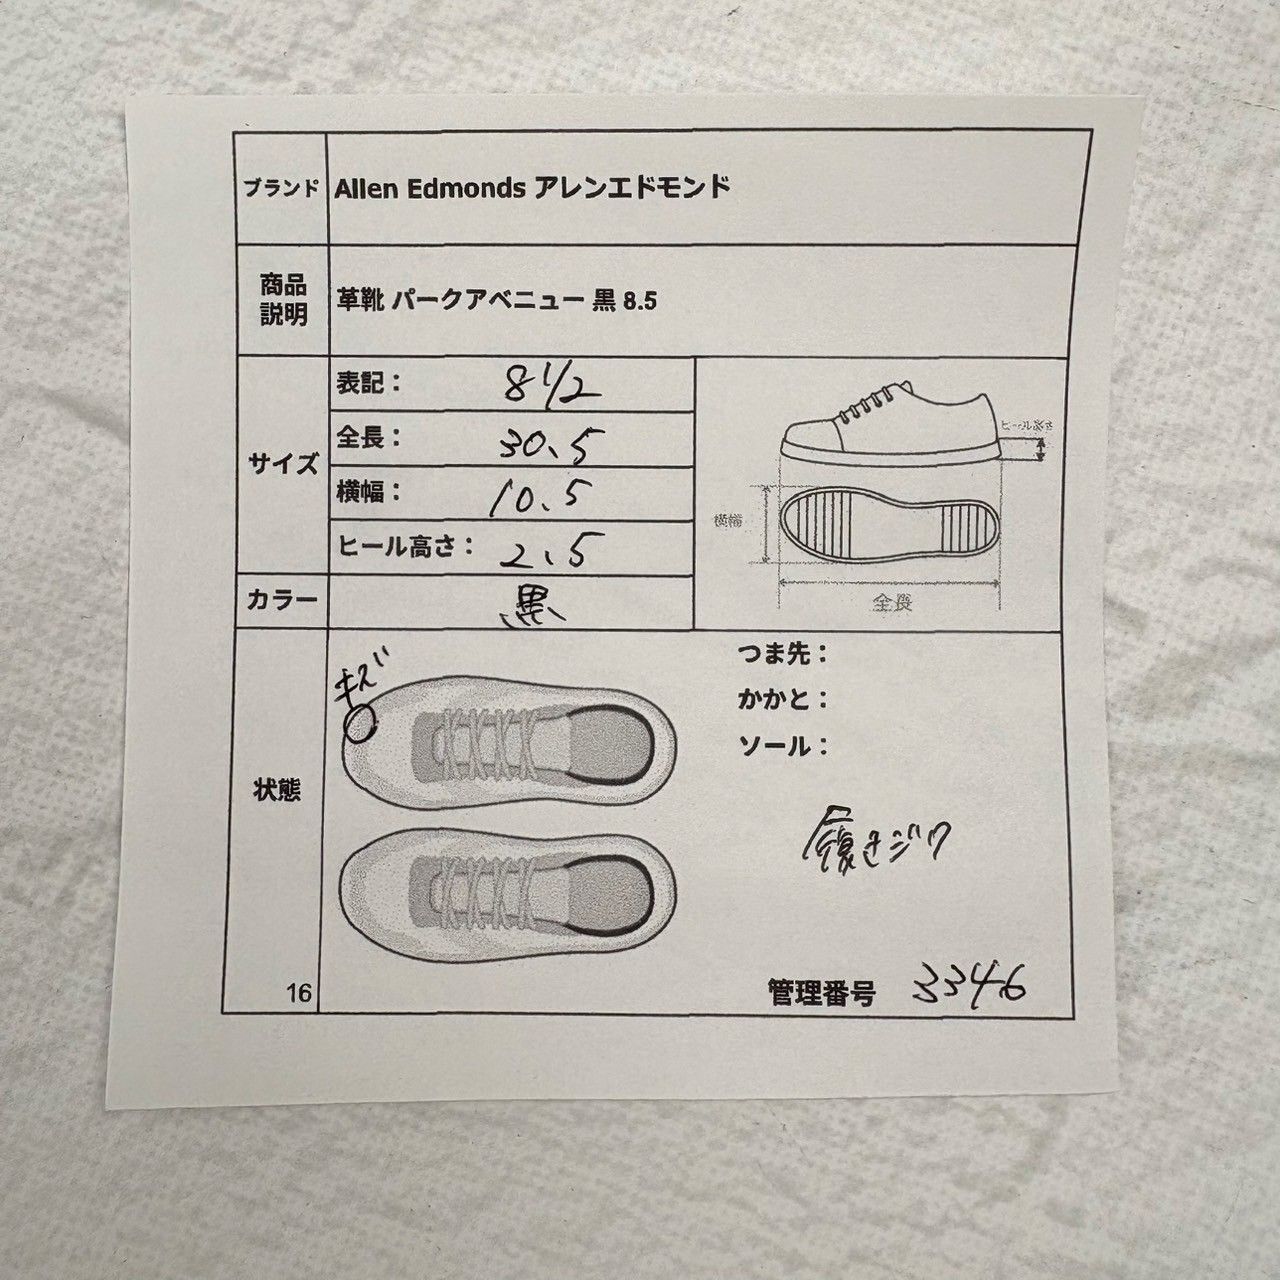 ブランド
Allen Edmonds アレンエドモンド
商品
説明
革靴 パークアベニュー 黒 8.5
サイズ
表記： 8 1/2
全長： 30.5
横幅： 10.5
ヒール高さ： 2.5
ヒール高さ
横幅
全長
カラー
黒
状態
キズ
つま先：
かかと：
ソール：
履きジワ
16
管理番号 3346